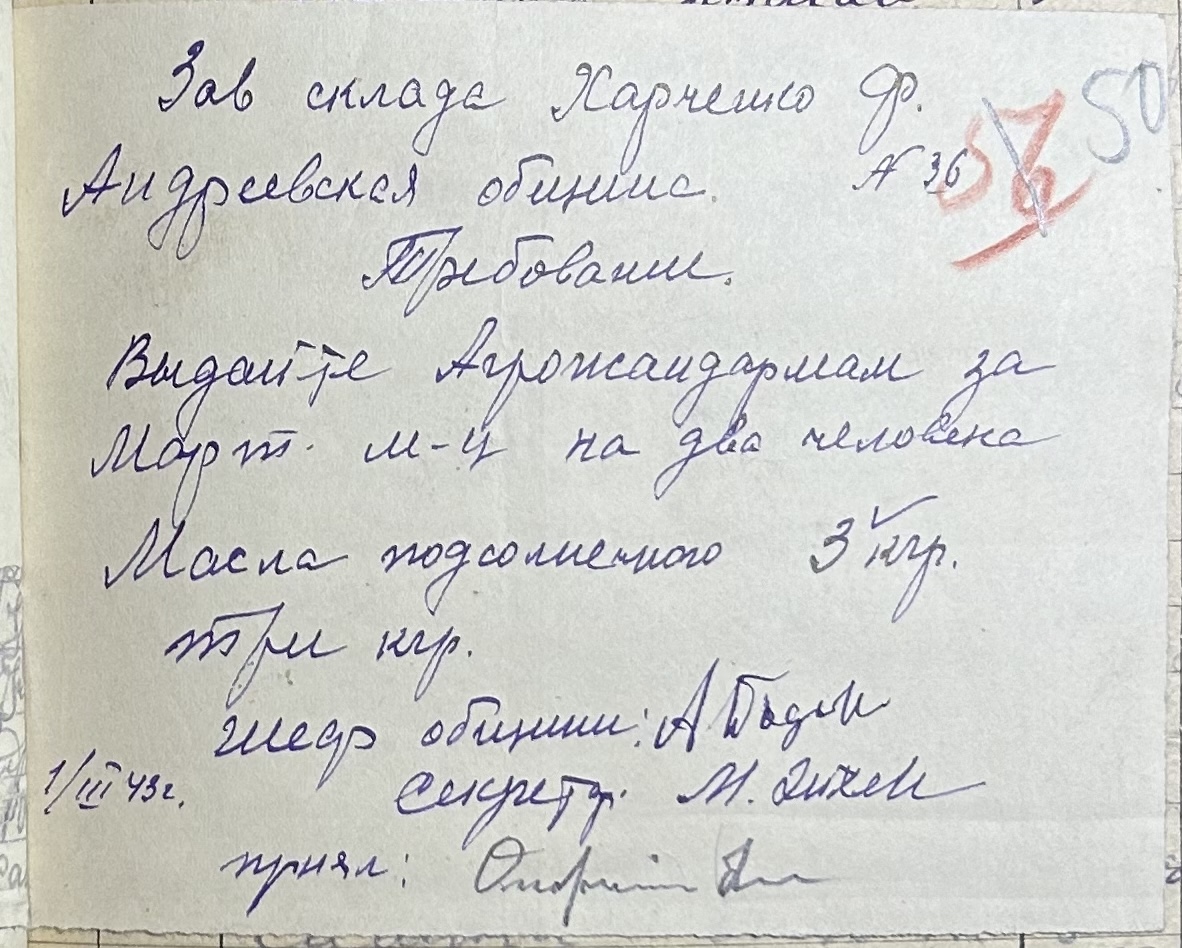 Зав склада Харченко Ф.
50
Андреевская общине.
№ 36
Требование.
Выдайте Агрожандармам за
Март. м-ц на два человека
Масла подсолнечного 3 кгр.
три кгр.
Шеф общины: А
1/III 43 г.
Секретр. М.
принял: